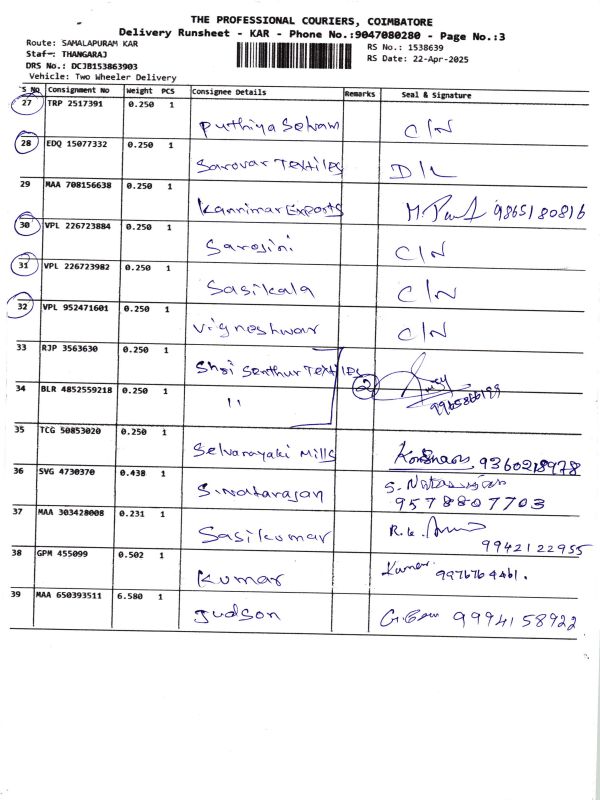 THE PROFESSIONAL COURIERS, COIMBATORE
Delivery Runsheet - KAR - Phone No.:9047080280 - Page No.:3
Route: SAMALAPURAM KAR
RS No.: 1538639
Staf-: THANGARAJ
RS Date: 22-Apr-2025
DRS No.: DCJB153863903
Vehicle: Two Wheeler Delivery
S No Consignment No Weight PCS Consignee Details Remarks Seal & Signature
27 TRP 2517391 0.250 1 Puthiya Selvam C/N
28 EDQ 15077332 0.250 1 Sarovar Textiles D/L
29 MAA 708156638 0.250 1 Kannimar Exports 9865180816
30 VPL 226723884 0.250 1 Sarojini C/N
31 VPL 226723982 0.250 1 Sasikala C/N
32 VPL 952471601 0.250 1 Vigneshwar C/N
33 RJP 3563630 0.250 1 Shri Senthur Textiles
34 BLR 4852559218 0.250 1 11 2
35 TCG 50853020 0.250 1 Selvanayaki Mills 9360218978
36 SVG 4730370 0.438 1 S.Natarajan S. Natarajan
9578807703
37 MAA 303428008 0.231 1 Sasikumar R.K.
9942122955
38 GPM 455099 0.502 1 Kumar Kumar 9976764461.
39 MAA 650393511 6.580 1 Judson 9994158922